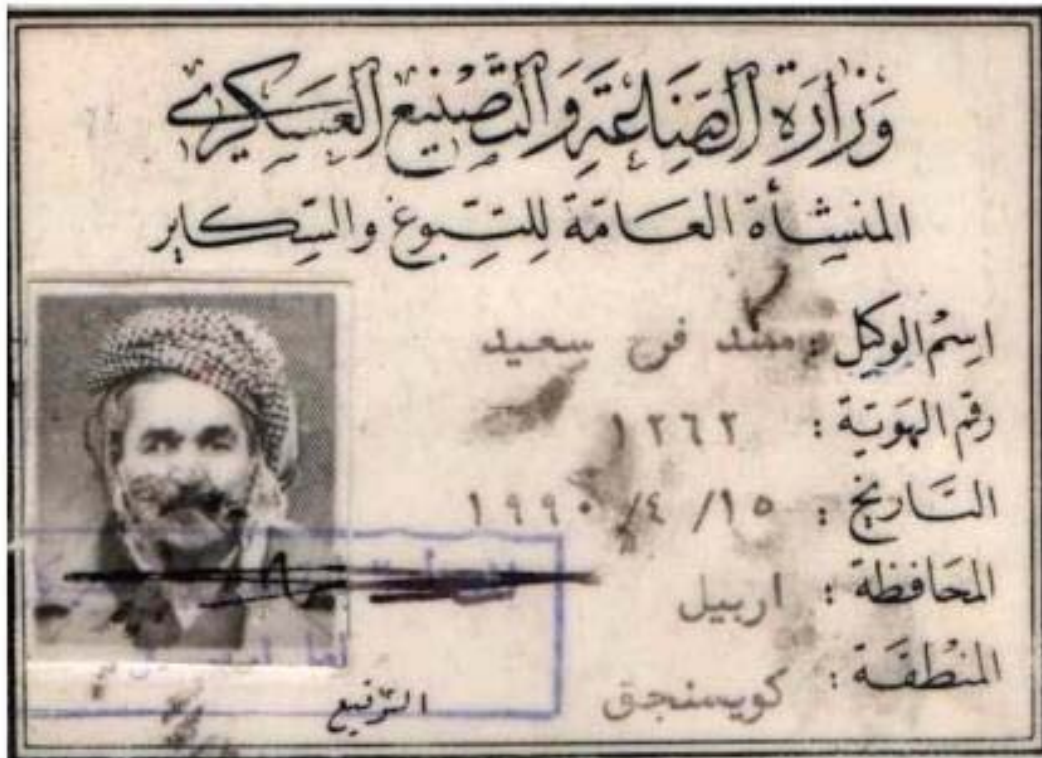 وزارة الصناعة والتصنيع العسكري
المنشأة العامة للتبوغ والسكاير
اسم الوكيل : فرج سعيد
رقم الهوية : ١٢٦٢
التاريخ : ١٥/ ٤/ ١٩٩٠
المحافظة : اربيل
المنطقة : كويسنجق
التوقيع